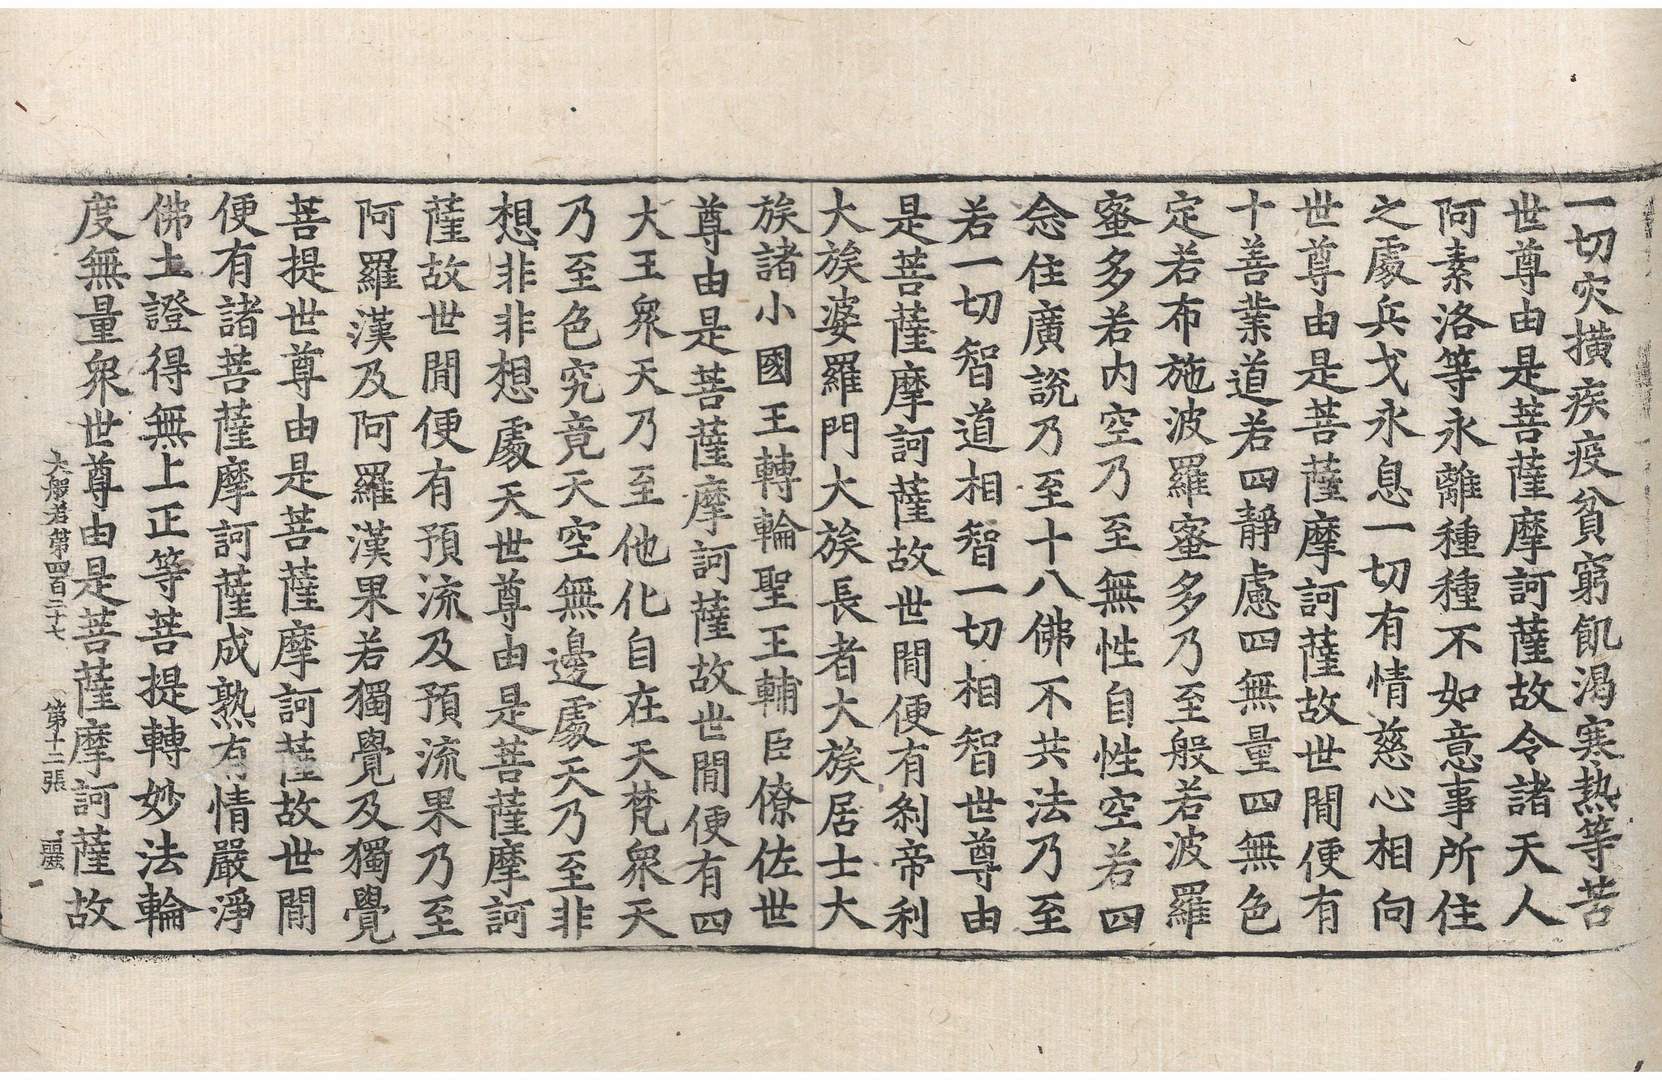 一切灾橫疾疫貧窮飢渴寒熱等苦
世尊由是菩薩摩訶薩故令諸天人
阿素洛等永離種種不如意事所住
之處兵戈永息一切有情慈心相向
世尊由是菩薩摩訶薩故世閒便有
十善業道若四靜慮四無量四無色
定若布施波羅蜜多乃至般若波羅
蜜多若內空乃至無性自性空若四
念住廣說乃至十八佛不共法乃至
若一切智道相智一切相智世尊由
是菩薩摩訶薩故世閒便有刹帝利
大族婆羅門大族長者大族居士大
族諸小國王轉輪聖王輔臣僚佐世
尊由是菩薩摩訶薩故世閒便有四
大王衆天乃至他化自在天梵衆天
乃至色究竟天空無邊處天乃至非
想非非想處天世尊由是菩薩摩訶
薩故世閒便有預流及預流果乃至
阿羅漢及阿羅漢果若獨覺及獨覺
菩提世尊由是菩薩摩訶薩故世閒
便有諸菩薩摩訶薩成熟有情嚴淨
佛土證得無上正等菩提轉妙法輪
度無量衆世尊由是菩薩摩訶薩故
大般若第四百二十七 第十二張 麗